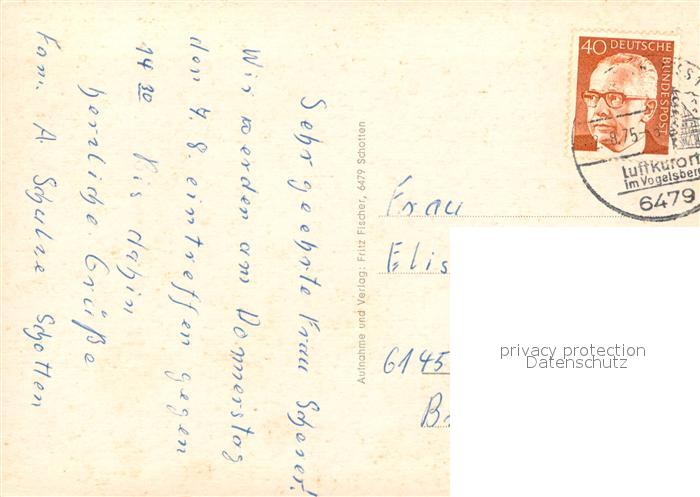 Sehr geehrte Frau Scherer!
Wir werden am Donnerstag
den 7. 8. eintreffen gegen
14 30 Bis dahin
herzliche Grüße
Fam. A. Schulze Schotten
Aufnahme und Verlag: Fritz Fischer, 6479 Schotten
40 DEUTSCHE
BUNDESPOST
8.75
Luftkurort
im Vogelsberg
6479
Frau
Elis
6145
privacy protection
Datenschutz